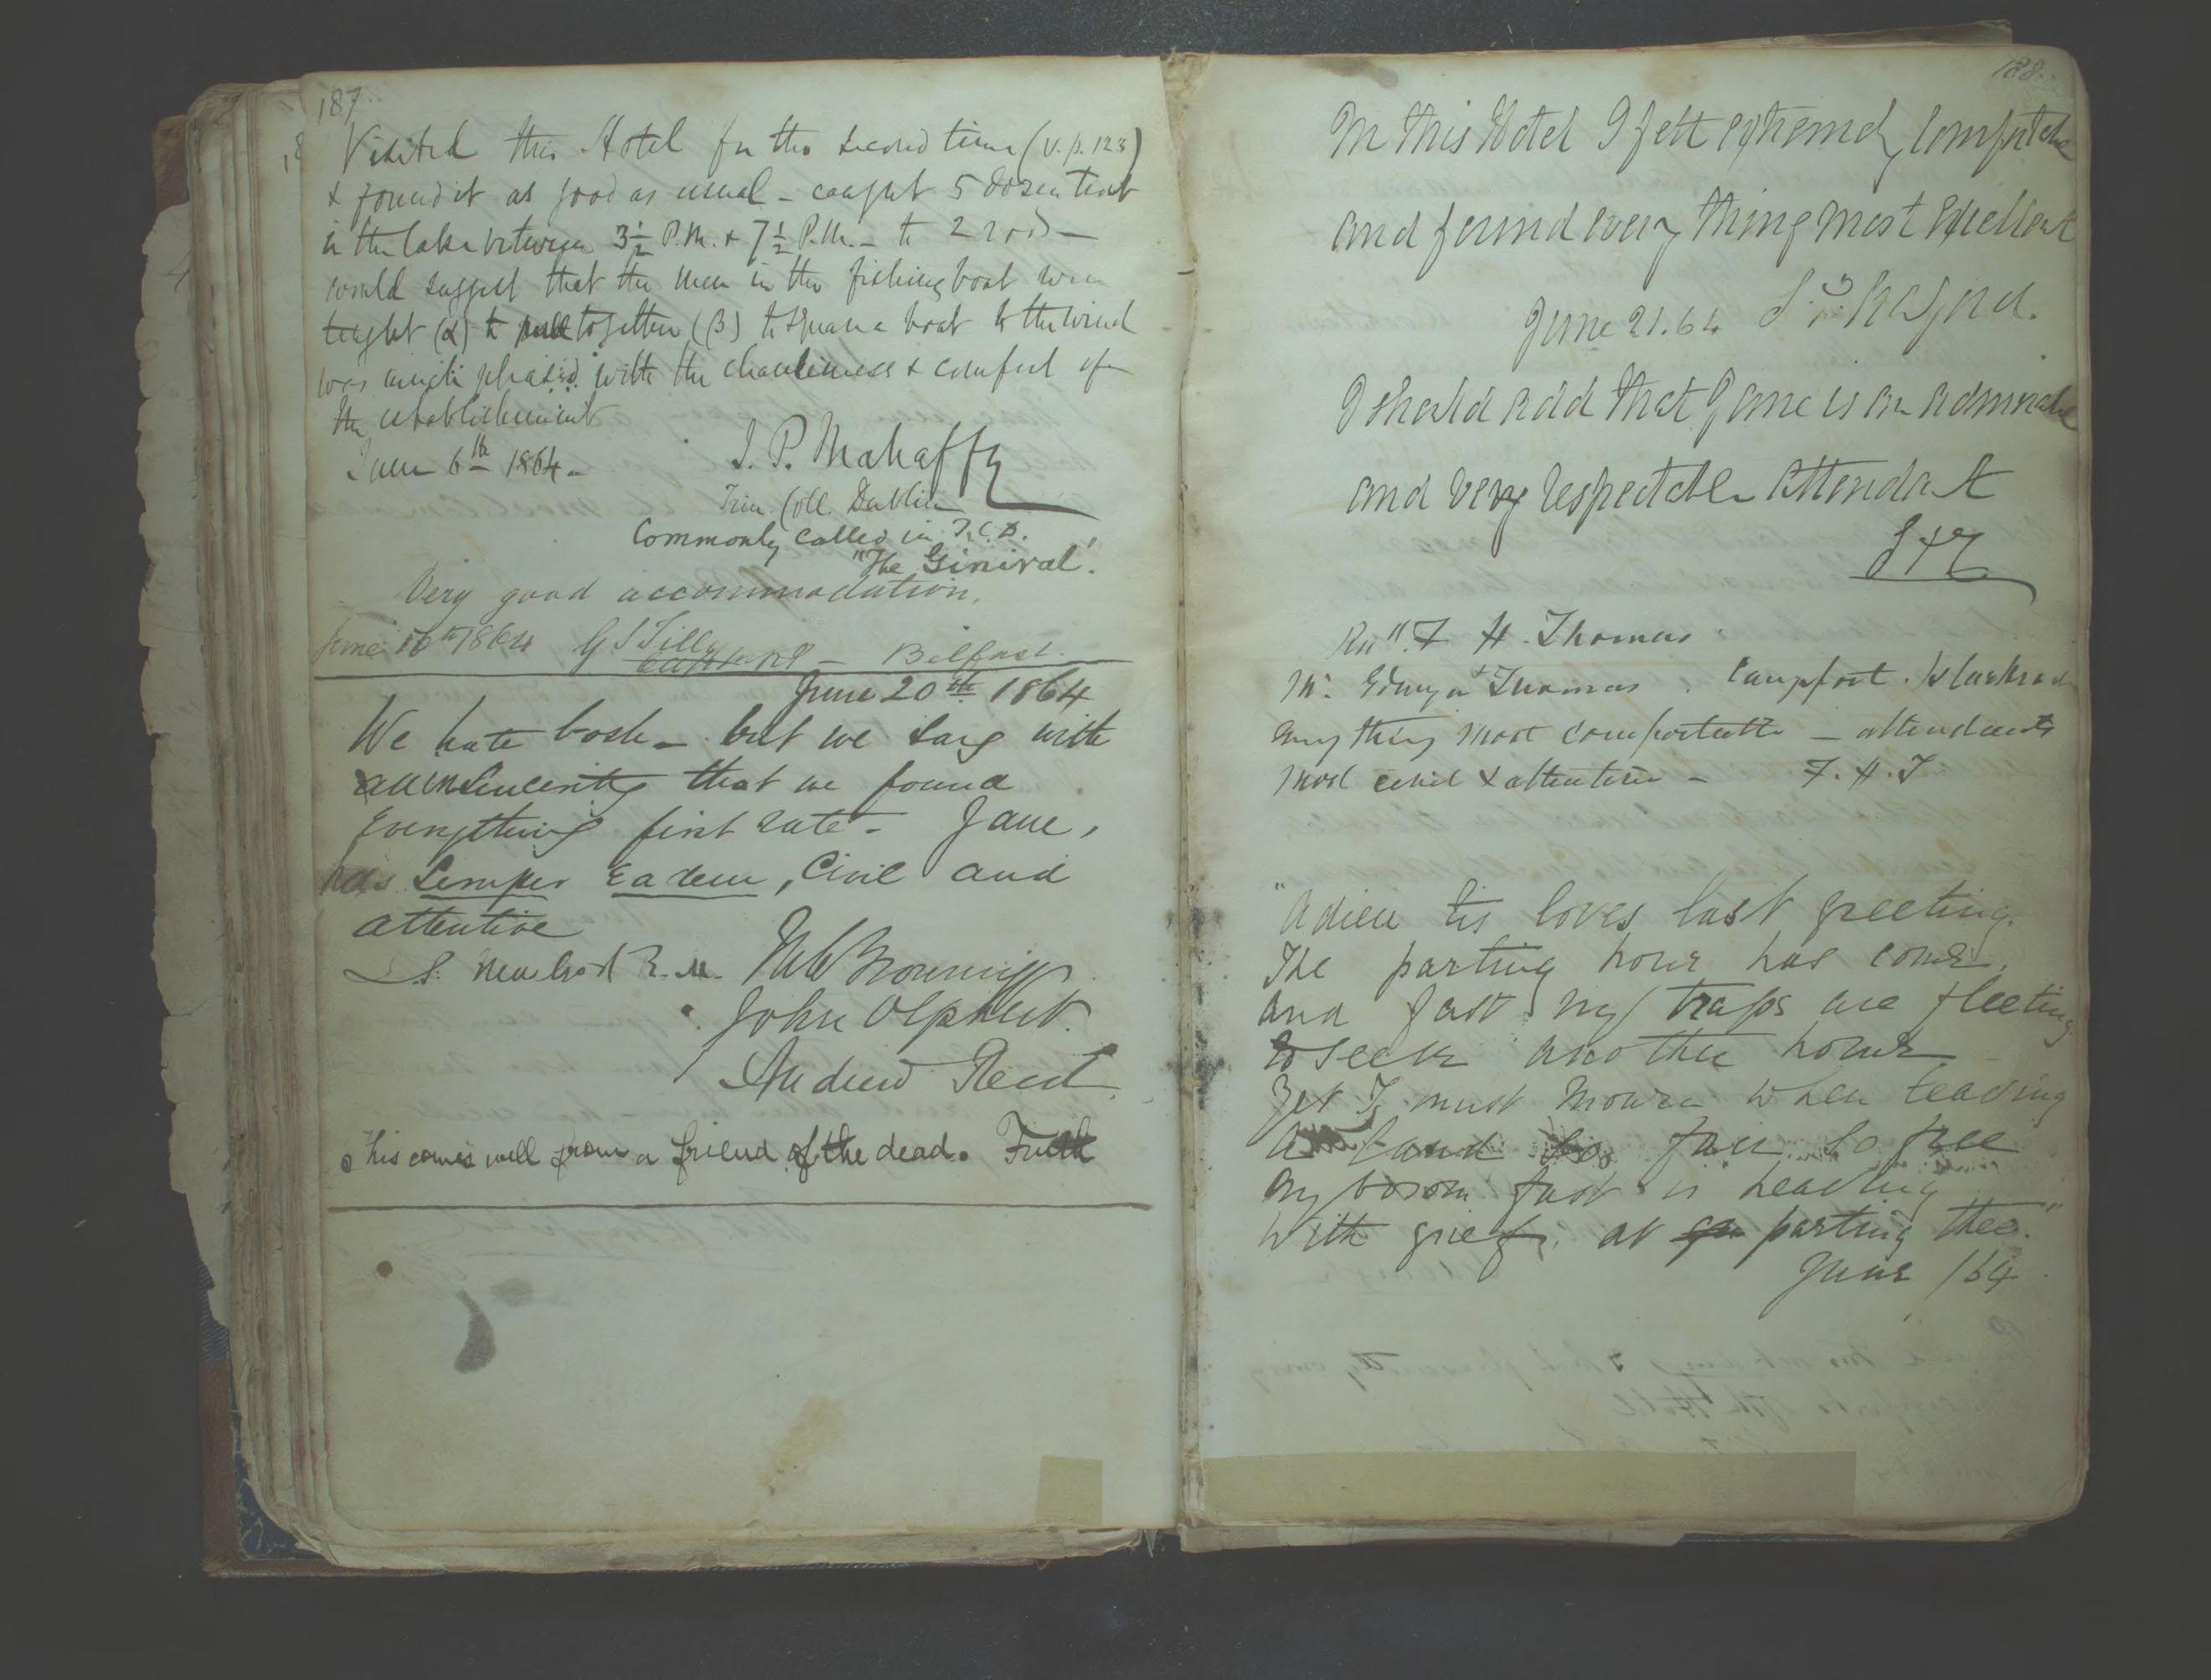 187
Visited this Hotel for the second time (v. p. 123)
& found it as good as usual - caught 5 dozen trout
in the lake between 3½ P.M. & 7½ P.M. - to 2 rods -
would suggest that the men in the fishing boat were
taught (α) to pull together (β) to square a boat to the wind
was much pleased with the cleanliness & comfort of
the establishment
June 6th 1864 -
J. P. Mahaffy
Trin. Coll. Dublin
Commonly called in T.C.D.
"The Giniral".
Very good accommodation.
June 16th 1864 G S Tilly
Belfast.
June 20th 1864
We hate bosh - but we say with
all sincerity that we found
Everything first rate - Jane,
as Semper Eadem, Civil and
attentive
John Olphert.
Andrew Reed
This comes well from a friend of the dead. Truth
188
In this Hotel I felt extremely comfortable
and found every thing most excellent
June 21. 64
I should add that Jane is an admirable
and very respectable attendant
Revd. F H. Thomas
Thomas
every thing most comfortable - attendants
most civil & attentive - F. H. T
"Adieu tis loves last greeting.
The parting hour has come.
And fast my traps are fleeting
to seek another home
Yet I must mourn when leaving
A land so fair so free
My bosom fast is heaving
With grief at parting thee."
June /64